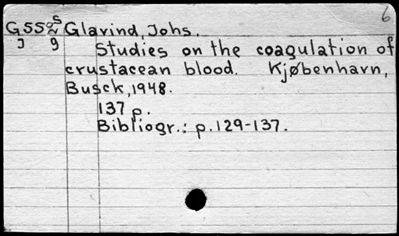 6
G552s Glavind, Johs.
J 9 Studies on the coagulation of
crustacean blood. Kjøbenhavn,
Busck, 1948.
137 p.
Bibliogr.: p.129-137.